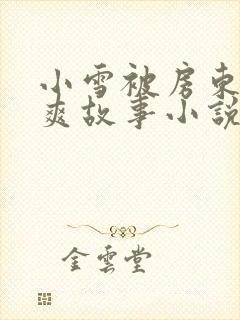 小雪被房东
爽故事小説
金雲堂